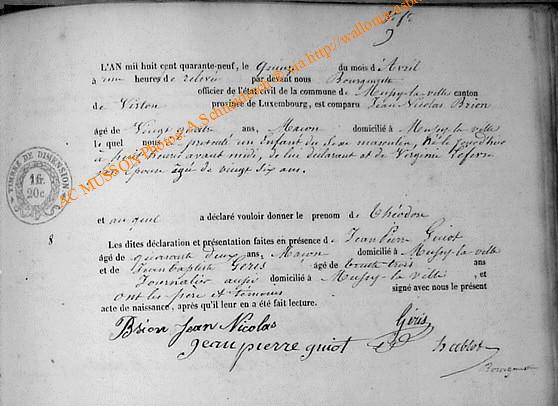 L'AN mil huit cent quarante-neuf, le quinze du mois d'Avril
à une heures de relevée par devant nous Bourgmestre
officier de l'état civil de la commune de Mussy-la-ville canton
de Virton province de Luxembourg, est comparu Jean Nicolas Brion
âgé de Vingt quatre ans, Macon domicilié à Mussy-la-ville
le quel nous a présenté un Enfant du Sexe masculin, Né le jourd'hui
à heures avant midi, de lui déclarant et de Virginie
son Epouse âgée de vingt six ans.
TIMBRE DE DIMENSION
1 fr.
20 c.
et au quel a déclaré vouloir donner le prenom de Théodore
8
Les dites déclaration et présentation faites en présence de Jean Pierre Guiot
âgé de quarante deux ans, Macon domicilié à Mussy-la-ville
et de Jean baptiste Géris âgé de trente trois ans
Journalier aussi domicilié à Mussy-la-ville, et
ont les père et témoins signé avec nous le présent
acte de naissance, après qu'il leur en a été fait lecture.
Brion Jean Nicolas
Géris
jean pierre guiot
AC MUSSON Photo A. Schmidt